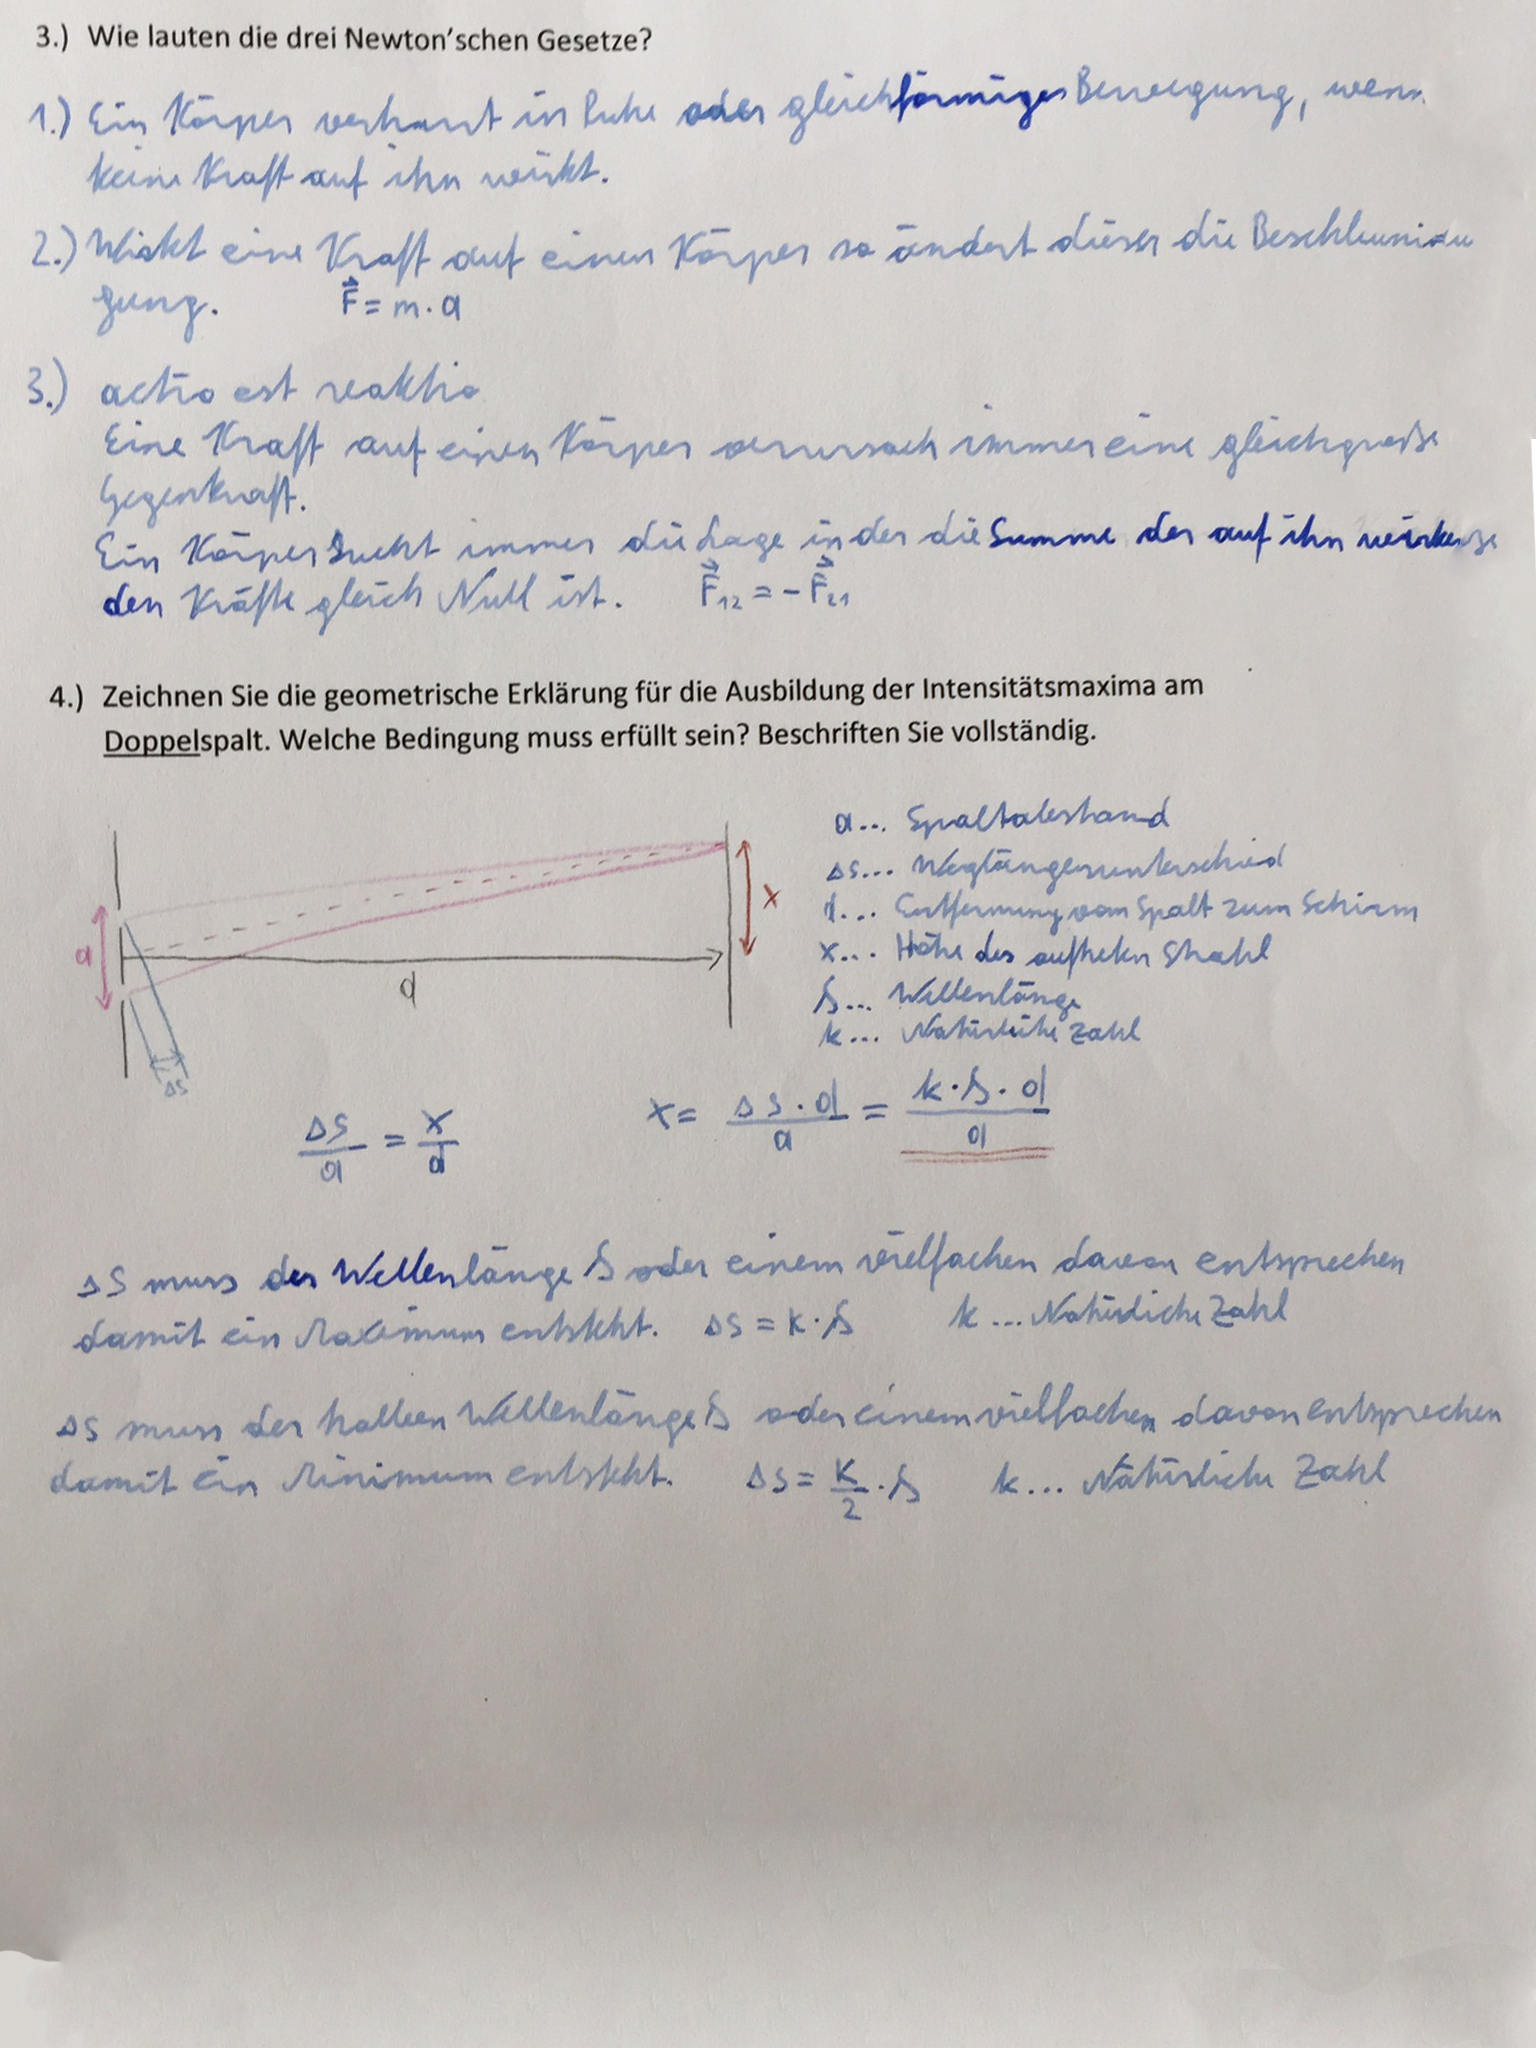 3.) Wie lauten die drei Newton'schen Gesetze?
1.) Ein Körper verharrt in Ruhe oder gleichförmiger Bewegung, wenn
keine Kraft auf ihn wirkt.
2.) Wirkt eine Kraft auf einen Körper so ändert dieser die Beschleuni
gung. F⃗ = m · a
3.) actio est reaktio
Eine Kraft auf einen Körper verursach immer eine gleichgroße
Gegenkraft.
Ein Körper sucht immer die Lage in der die Summe der auf ihn wirken
den Kräfte gleich Null ist. F⃗₁₂ = - F⃗₂₁
4.) Zeichnen Sie die geometrische Erklärung für die Ausbildung der Intensitätsmaxima am
Doppelspalt. Welche Bedingung muss erfüllt sein? Beschriften Sie vollständig.
a... Spaltabstand
Δs... Weglängenunterschied
d... Entfernung vom Spalt zum Schirm
x... Höhe des Strahl
λ... Wellenlänge
k... Natürliche Zahl
a
d
x
Δs
Δs/a = x/d
x = Δs·d/a = k·λ·d/a
Δs muss der Wellenlänge λ oder einem vielfachen davon entsprechen
damit ein Maximum entsteht. Δs = k·λ k ... Natürliche Zahl
Δs muss der halben Wellenlänge λ oder einem vielfachen davon entsprechen
damit ein Minimum entsteht. Δs = k/2·λ k... Natürliche Zahl